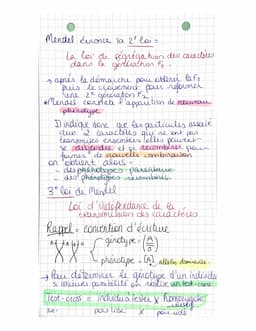 Mendel énonce la 2e loi :
La loi de ségrégation des caractères
dans la génération F2.
→ après la démarche pour obtenir la F1
puis le croisement pour reformer
une 2e génération F2.
Mendel connait l'apparition de nouveau
phénotype
Il indique donc que les particules associé
aux 2 caractères qui ne sont pas
transmises ensembles elles peuvent
se disjoindre et se recombiner pour
former de nouvelle combinaison
on obtient alors :
- des phénotypes parentaux
- des phénotypes recombinés.
3e loi de Mendel
Loi d'indépendance de la
transmission des caractères
Rappel = convention d'écriture
génotype : (A/a)
phénotype = [A] allèles dominants
→ Pour déterminer le génotype d'un individu
à plusieurs possibilité on réalise un test-cross
Test-cross = individu à tester X Homozygote
récessif
pour lise X pois ridé